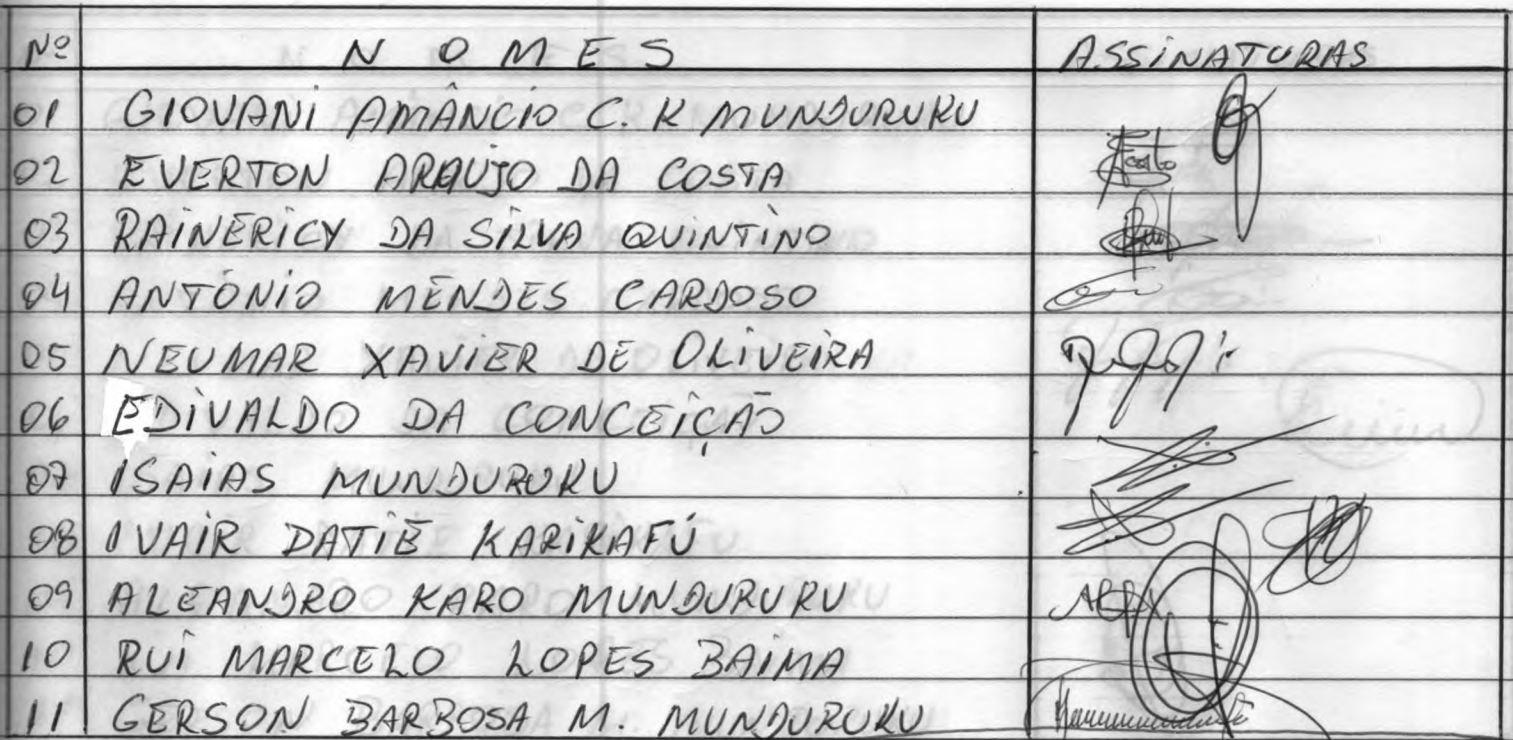 Nº NOMES ASSINATURAS
01 GIOVANI AMÂNCIO C. K MUNDURUKU
02 EVERTON ARAUJO DA COSTA
03 RAINERICY DA SILVA QUINTINO
04 ANTÔNIO MENDES CARDOSO
05 NEUMAR XAVIER DE OLIVEIRA
06 EDIVALDO DA CONCEIÇÃO
07 ISAIAS MUNDURUKU
08 IVAIR DATIE KARIKAFÚ
09 ALEANDRO KARO MUNDURUKU
10 RUI MARCELO LOPES BAIMA
11 GERSON BARBOSA M. MUNDURUKU